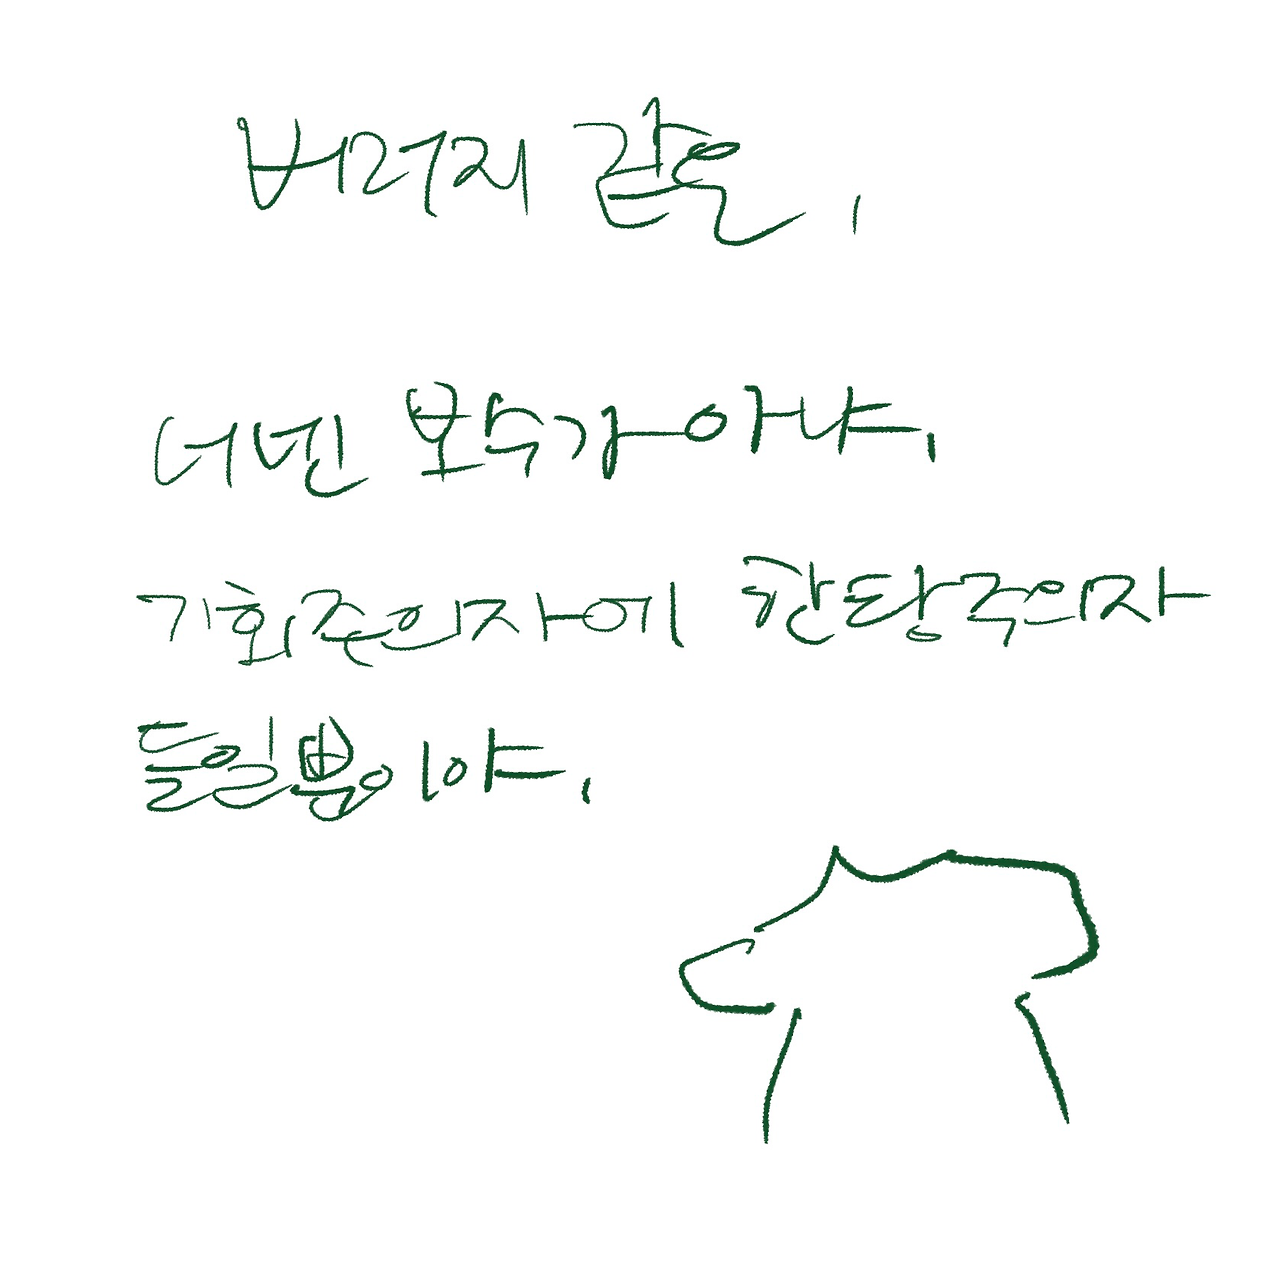 버러지 같은,
너넨 보수가 아냐.
기회주의자에 한탕주의자
들일 뿐이야.